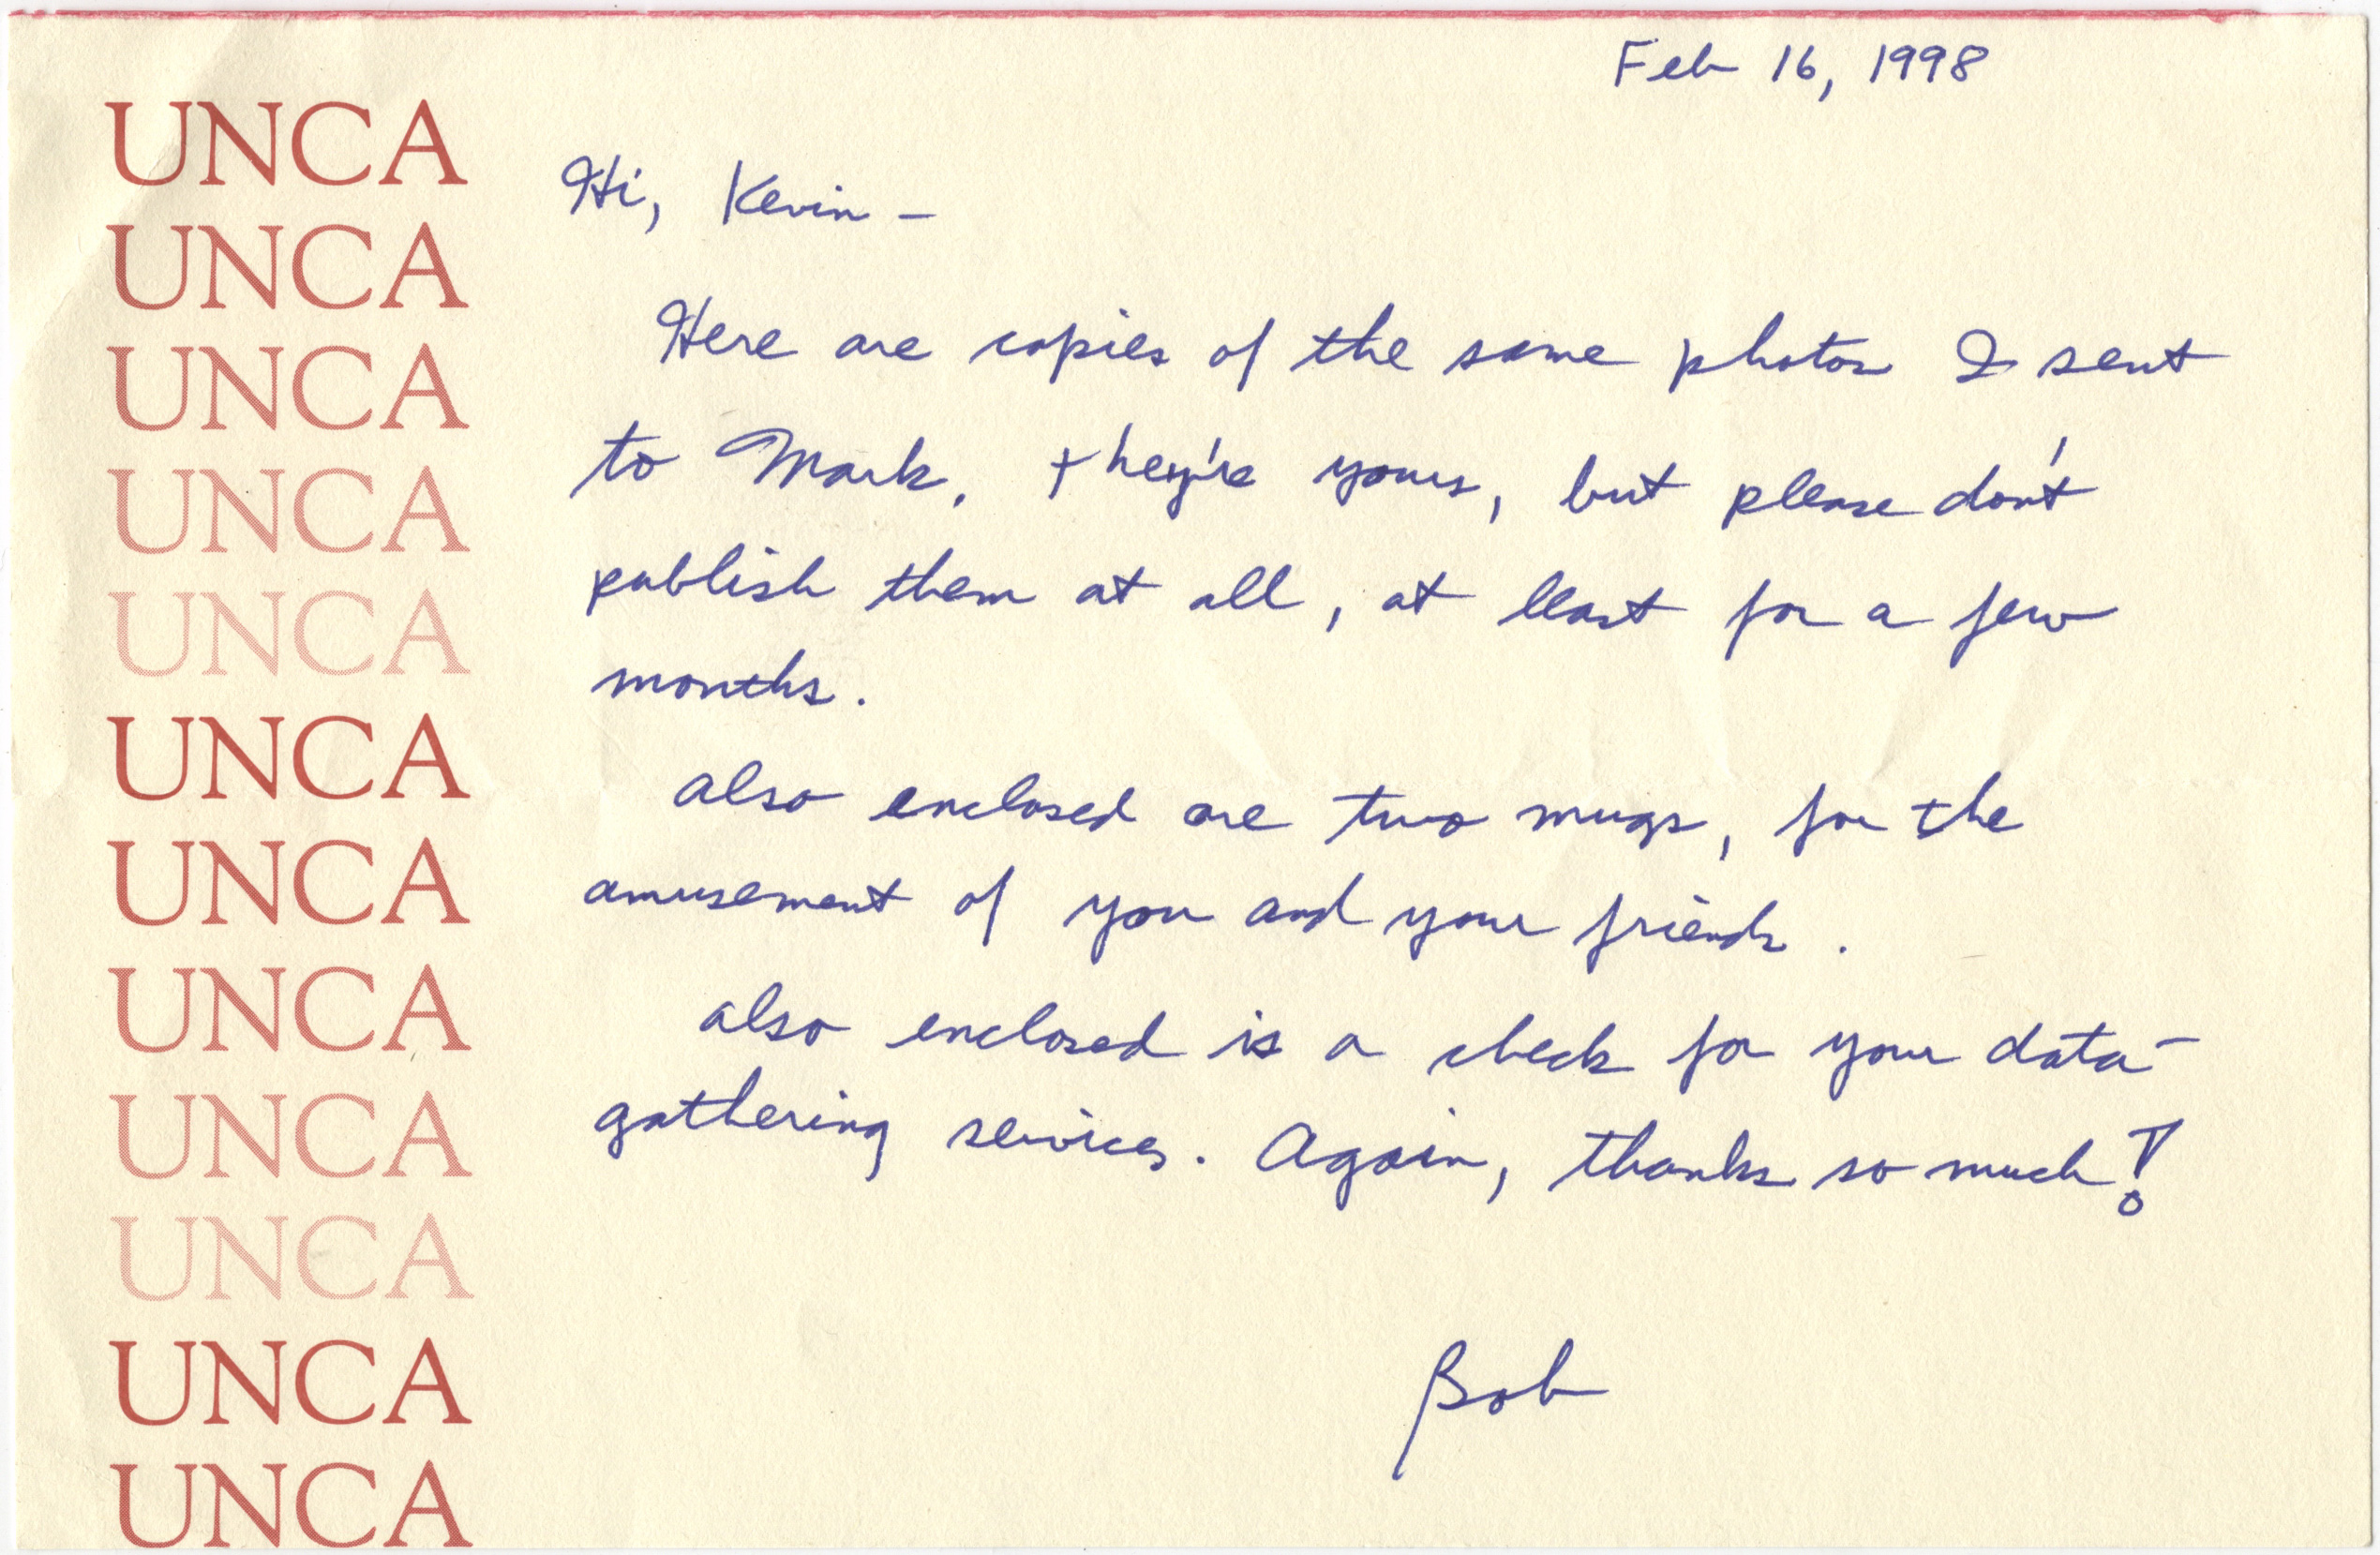 Feb 16, 1998
UNCA
UNCA
UNCA
UNCA
UNCA
UNCA
UNCA
UNCA
UNCA
UNCA
UNCA
UNCA
Hi, Kevin –
Here are copies of the same photos I sent
to Mark. They're yours, but please don't
publish them at all, at least for a few
months.
Also enclosed are two mugs, for the
amusement of you and your friends.
Also enclosed is a check for your data-
gathering services. Again, thanks so much!
Bob